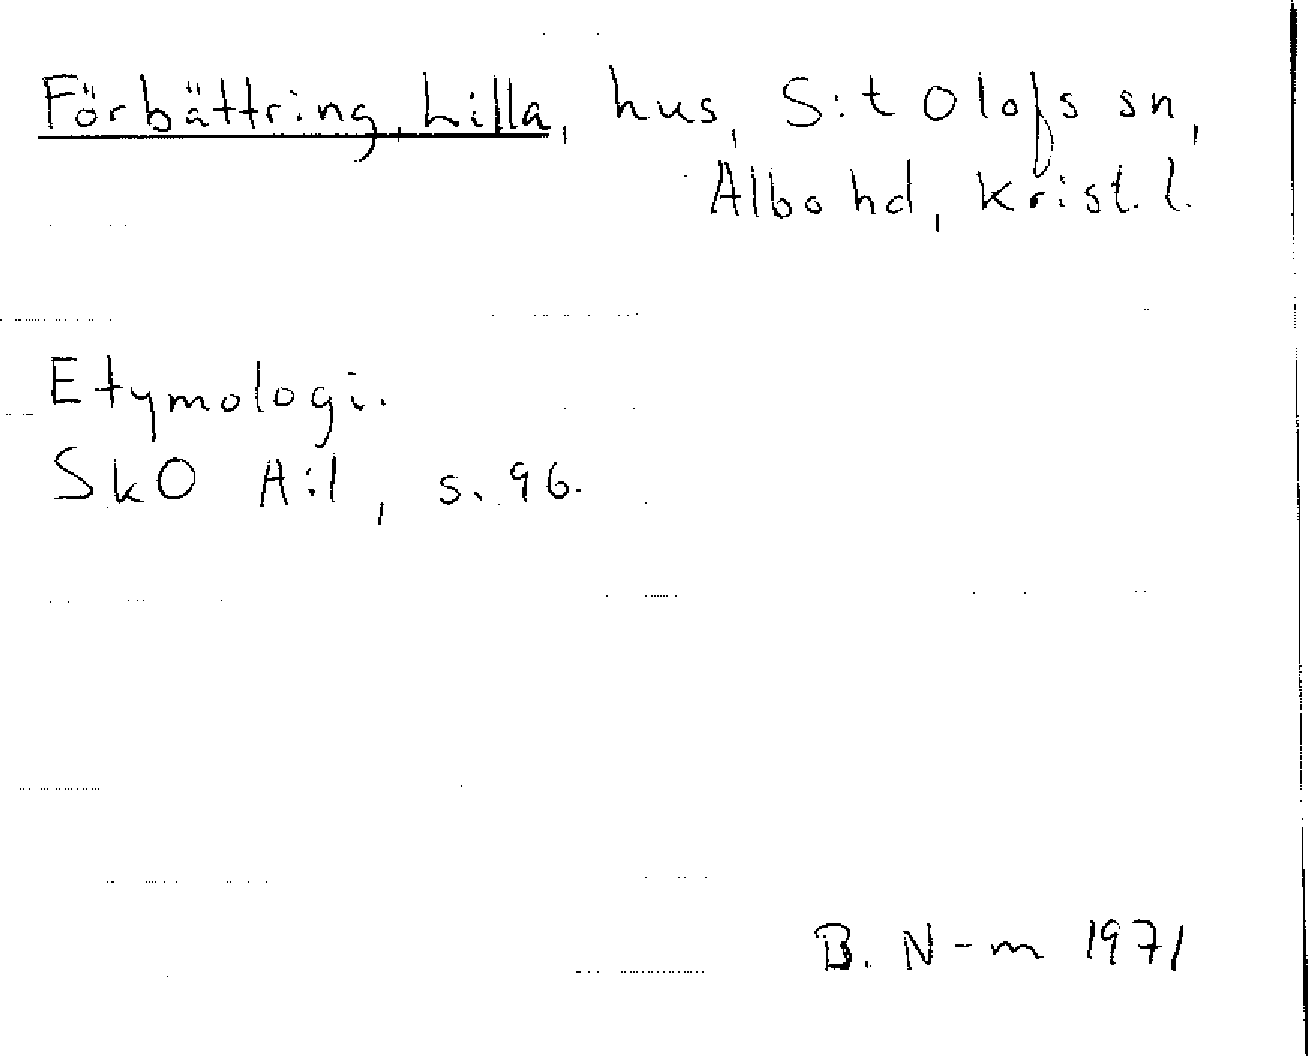 Förbättring, Lilla, hus, S:t Olofs sn,
Albo hd, Krist. l.
Etymologi.
SkO A:1, s. 96.
B. N-m 1971